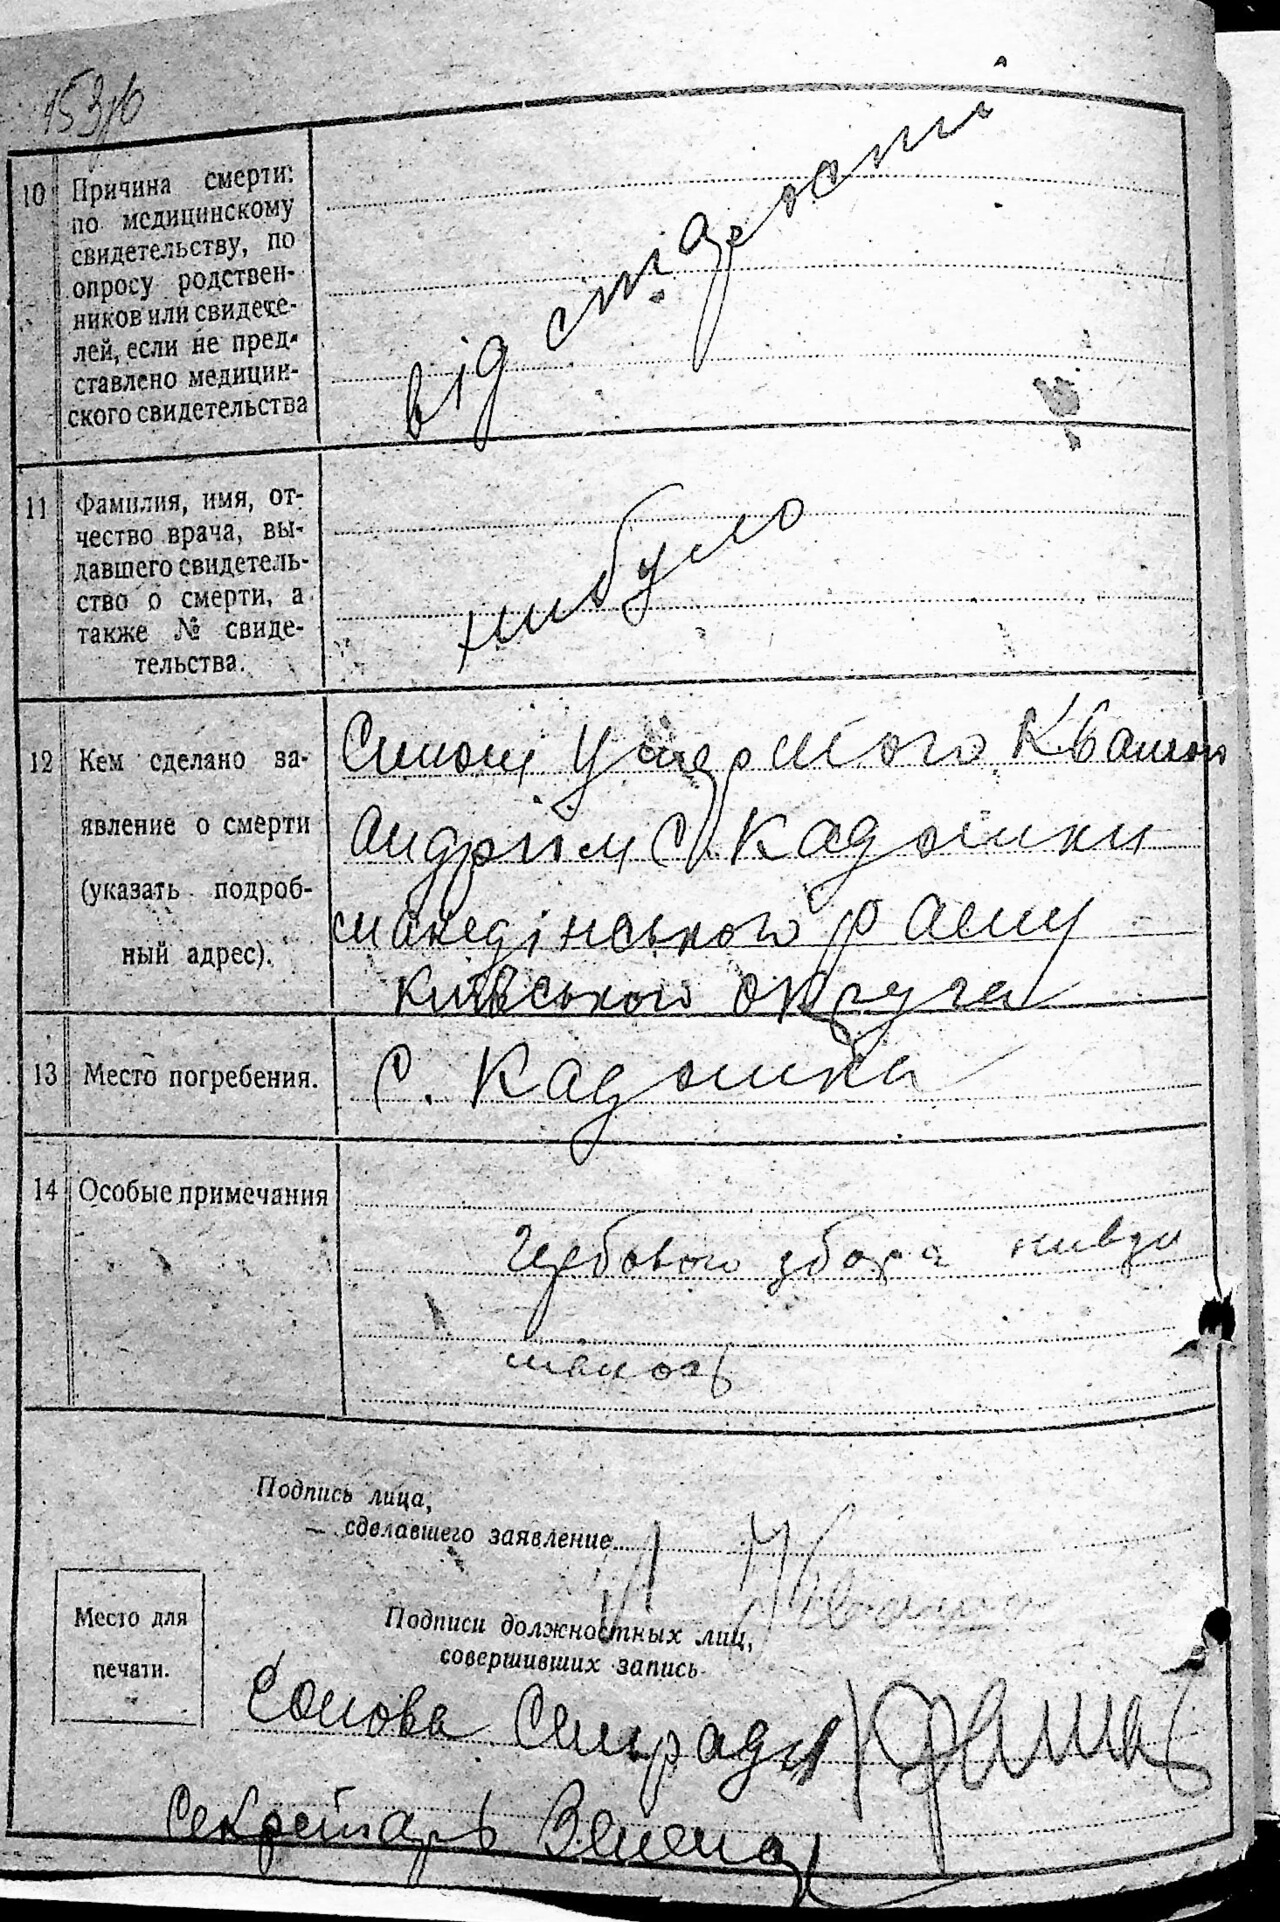 10 Причина смерти:
по медицинскому
свидетельству, по
опросу родствен-
ников или свидете-
лей, если не пред-
ставлено медицин-
ского свидетельства
від старости
11 Фамилия, имя, от-
чество врача, вы-
давшего свидетель-
ство о смерти, а
также № свиде-
тельства.
нибуло
12 Кем сделано за-
явление о смерти
(указать подроб-
ный адрес).
Сином умерлого Кваша
Андрієм С. Кадомки
района
Київського округа
13 Место погребения.
С. Кадомка
14 Особые примечания
Гербового збора нивзи
малось
Подпись лица,
сделавшего заявление
А Кваша
Подписи должностных лиц,
совершивших запись
Место для
печати.
Голова Сільради
Секретарь